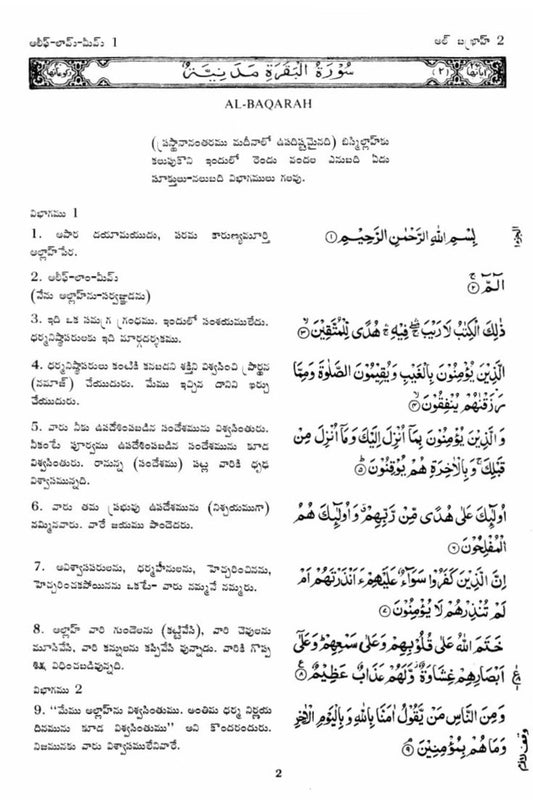 అలీఫ్-లామ్-మీమ్ 1
అల్ బఖ్రాహ్ 2
سُورَةُ الْبَقَرَةِ مَدَنِيَّةٌ
AL-BAQARAH
(ప్రస్థానానంతరము మదీనాలో ఉపదిష్టమైనది) బిస్మిల్లాహ్‌కు
కలుపుకొని ఇందులో రెండు వందల ఎనుబది ఏడు
సూక్తులు-నలుబది విభాగములు గలవు.
విభాగము 1
1. అపార దయామయుడు, పరమ కారుణ్యమూర్తి
అల్లాహ్‌పేర.
بِسْمِ اللهِ الرَّحْمٰنِ الرَّحِيْمِ ①
2. అలీఫ్-లాం-మీమ్
(నేను అల్లాహ్‌ను-సర్వజ్ఞాడను)
الٓمّٓ ②
3. ఇది ఒక సమగ్ర గ్రంథము. ఇందులో సంశయములేదు.
ధర్మనిష్ఠాపరులకు ఇది మార్గదర్శకము.
ذٰلِكَ الْكِتٰبُ لَا رَيْبَ ۛ فِيْهِ ۛ هُدًى لِّلْمُتَّقِيْنَ ③
4. ధర్మనిష్ఠాపరులు కంటికి కనబడని శక్తిని విశ్వసించి ప్రార్థన
(నమాజ్) చేయుదురు. మేము ఇచ్చిన దానిని ఖర్చు
చేయుదురు.
الَّذِيْنَ يُؤْمِنُوْنَ بِالْغَيْبِ وَيُقِيْمُوْنَ الصَّلٰوةَ وَمِمَّا
رَزَقْنٰهُمْ يُنْفِقُوْنَ
5. వారు నీకు ఉపదేశింపబడిన సందేశమును విశ్వసింతురు.
నీకంటే పూర్వము ఉపదేశింపబడిన సందేశమును కూడ
విశ్వసింతురు. రానున్న (సందేశము) పట్ల వారికి ధృఢ
విశ్వాసమున్నది.
وَالَّذِيْنَ يُؤْمِنُوْنَ بِمَآ اُنْزِلَ اِلَيْكَ وَمَآ اُنْزِلَ مِنْ
قَبْلِكَ ۚ وَبِالْاٰخِرَةِ هُمْ يُوْقِنُوْنَ ⑤
6. వారు తమ ప్రభువు ఉపదేశమును (నిశ్చయముగా)
నమ్మినవారు. వారే జయము పొందెదరు.
اُولٰٓئِكَ عَلٰى هُدًى مِّنْ رَّبِّهِمْ ۗ وَاُولٰٓئِكَ هُمُ
الْمُفْلِحُوْنَ ⑥
7. అవిశ్వాసపరులను, ధర్మహీనులను, హెచ్చరించినను,
హెచ్చరించకపోయినను ఒకటే- వారు నమ్మనే నమ్మరు.
اِنَّ الَّذِيْنَ كَفَرُوْا سَوَآءٌ عَلَيْهِمْ ءَاَنْذَرْتَهُمْ اَمْ
لَمْ تُنْذِرْهُمْ لَا يُؤْمِنُوْنَ
8. అల్లాహ్ వారి గుండెలను (కట్టివేసి), వారి చెవులను
మూసివేసి, వారి కన్నులను కప్పివేసి వున్నాడు. వారికి గొప్ప
శిక్ష విధించబడివున్నది.
خَتَمَ اللهُ عَلٰى قُلُوْبِهِمْ وَعَلٰى سَمْعِهِمْ ۗ وَعَلٰٓى
اَبْصَارِهِمْ غِشَاوَةٌ ۫ وَّلَهُمْ عَذَابٌ عَظِيْمٌ ⑧
విభాగము 2
9. "మేము అల్లాహ్‌ను విశ్వసింతుము. అంతిమ ధర్మ నిర్ణయ
దినమును కూడ విశ్వసింతుము" అని కొందరందురు.
నిజమునకు వారు విశ్వాసములేనివారే.
وَمِنَ النَّاسِ مَنْ يَّقُوْلُ اٰمَنَّا بِاللهِ وَبِالْيَوْمِ الْاٰخِرِ
وَمَا هُمْ بِمُؤْمِنِيْنَ ⑨
2